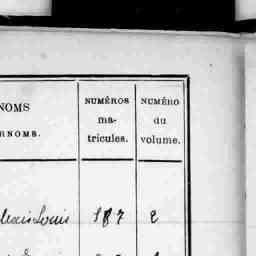 NOMS
RNOMS.
NUMÉROS
ma-
tricules.
NUMÉRO
du
volume.
Louis 187 2